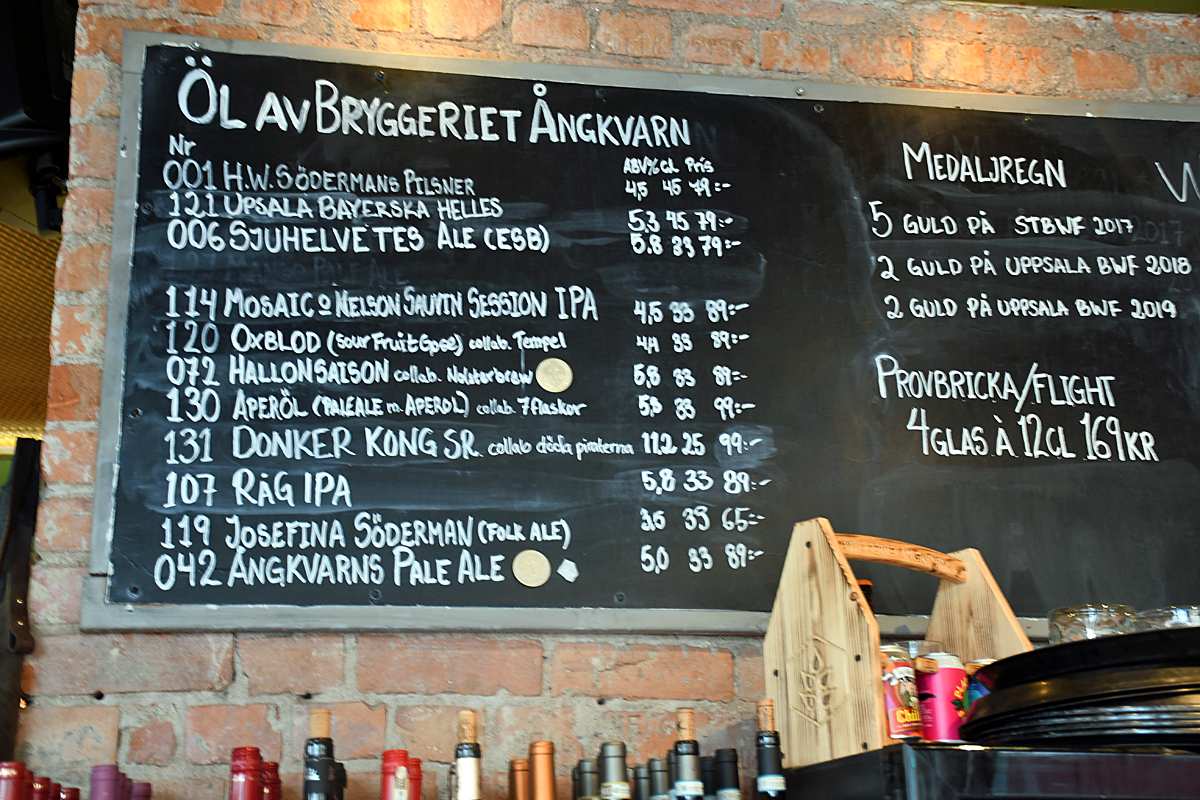 ÖL AV BRYGGERIET ÅNGKVARN
Nr ABV% CL Pris
001 H.W. SÖDERMANS PILSNER 4,5 45 79:-
121 UPSALA BAYERSKA HELLES 5,3 45 79:-
006 SJUHELVETES ALE (ESB) 5,8 33 79:-
114 MOSAIC O NELSON SAUVIN SESSION IPA 4,5 33 89:-
120 OXBLOD (sour Fruit Gose) collab. Tempel 4,4 33 89:-
072 HALLONSAISON collab. 5,8 33 89:-
130 APERÖL (PALEALE m. APEROL) collab. 7flaskor 5,8 33 99:-
131 DONKER KONG SR. collab döda piraterna 11,2 25 99:-
107 RÅG IPA 5,8 33 89:-
119 JOSEFINA SÖDERMAN (FOLK ALE) 3,6 33 65:-
042 ÅNGKVARNS PALE ALE 5,0 33 89:-
MEDALJREGN
5 GULD PÅ STBWF 2017
2 GULD PÅ UPPSALA BWF 2018
2 GULD PÅ UPPSALA BWF 2019
PROVBRICKA/FLIGHT
4 GLAS À 12CL 169KR